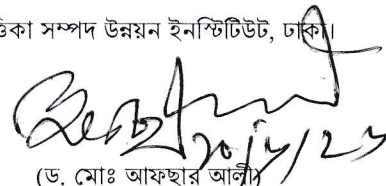 ত্তিকা সম্পদ উন্নয়ন ইনস্টিটিউট, ঢাকা।
(ড. মোঃ আফছার আলী)